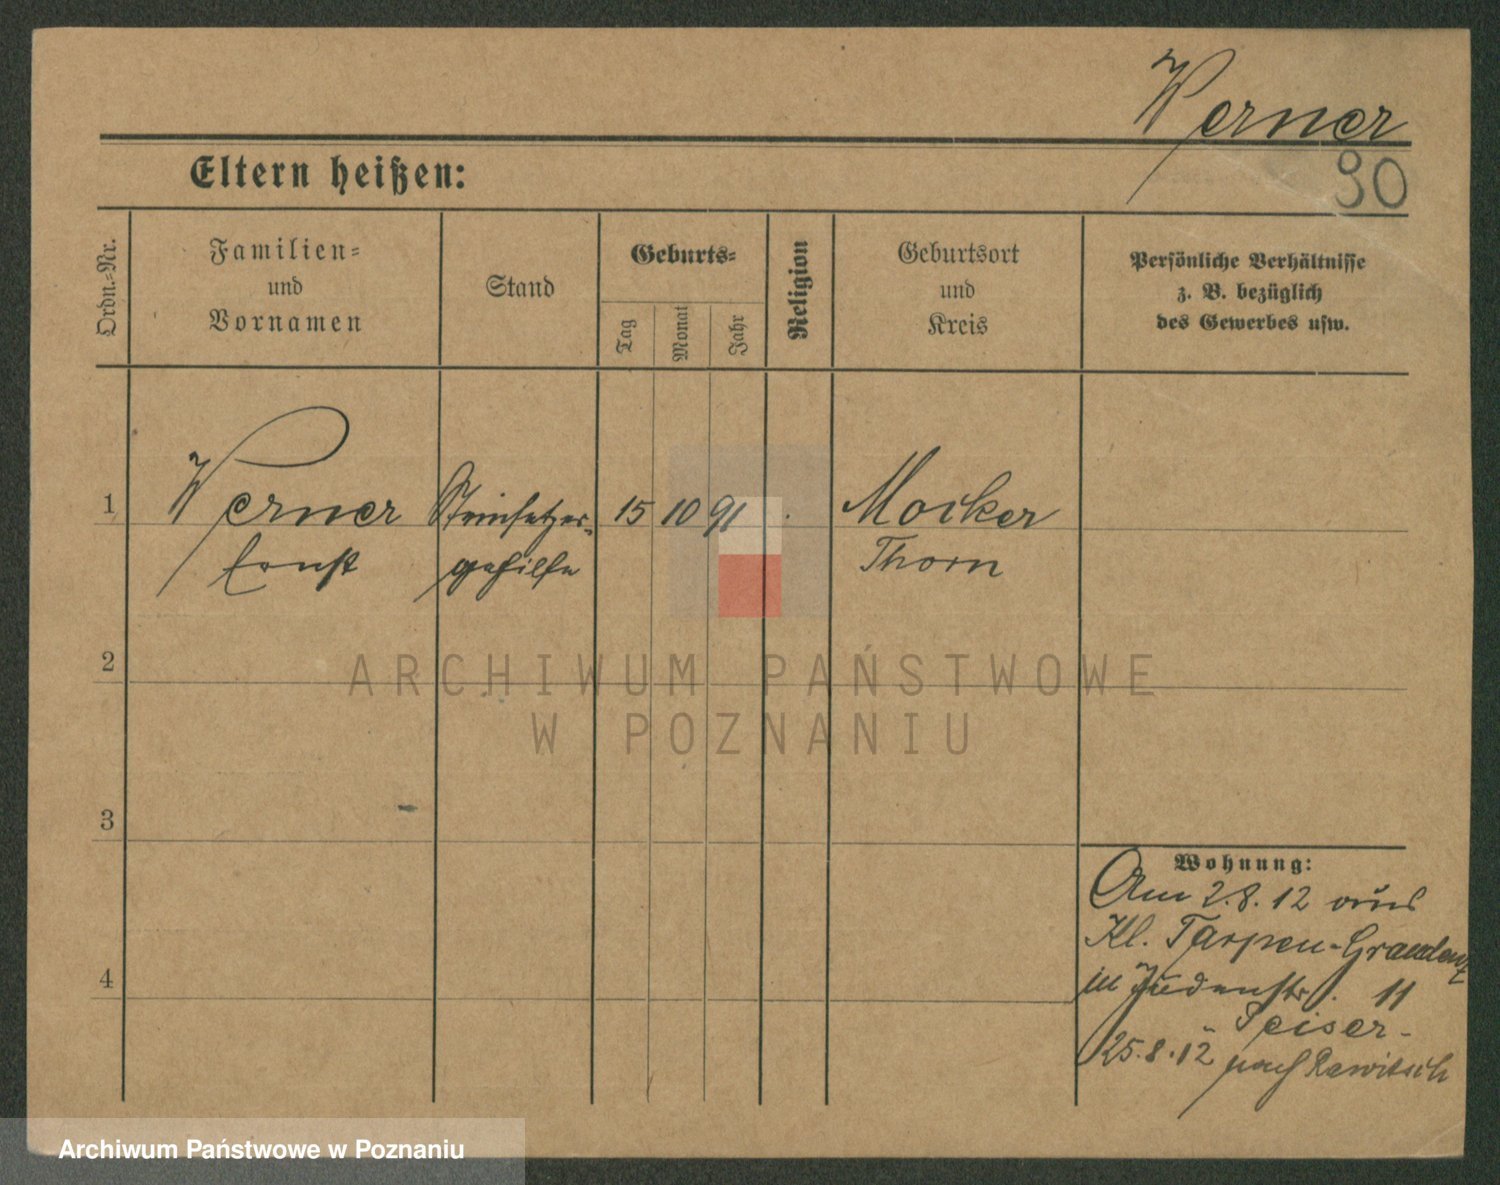 Werner
90
Eltern heißen:
Ordn.-Nr.
Familien-
und
Vornamen
Stand
Geburts-
Tag
Monat
Jahr
Religion
Geburtsort
und
Kreis
Persönliche Verhältnisse
z. B. bezüglich
des Gewerbes usw.
1
Werner
Ernst
Steinsetzer-
gehilfe
15 10 91
Mocker
Thorn
2
ARCHIWUM PAŃSTWOWE
W POZNANIU
3
Wohnung:
Am 2.8.12 aus
Kl. Tarpen-Graudenz
in Judenstr. 11
Peiser-
25.8.12 nach Rawitsch
4
Archiwum Państwowe w Poznaniu